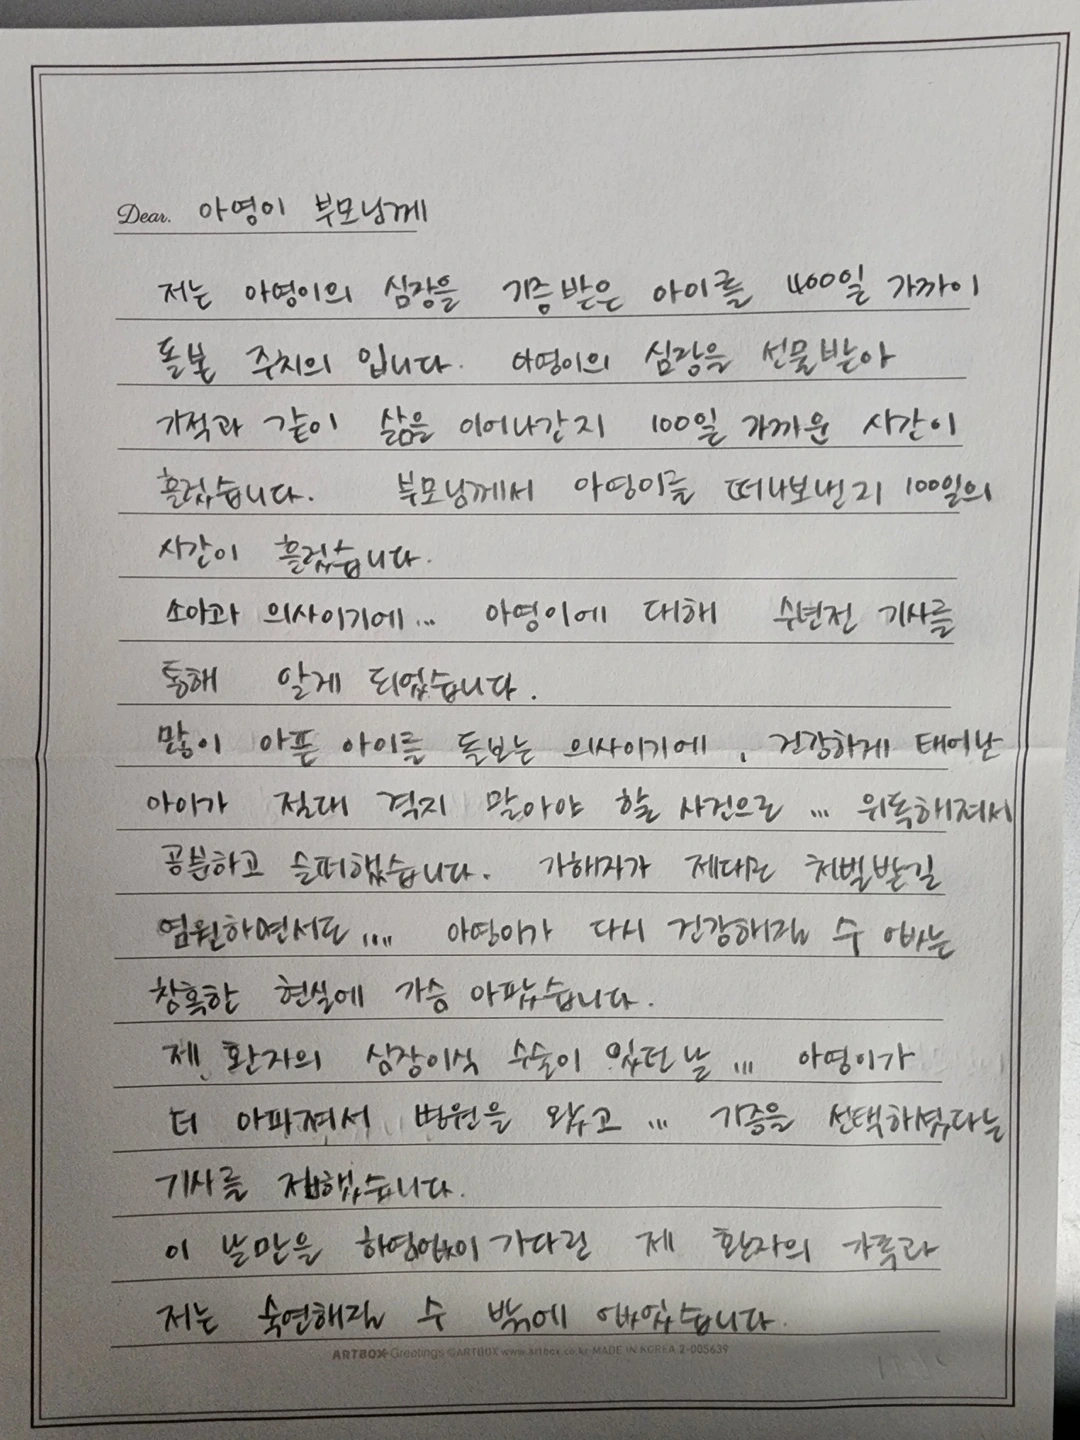 Dear. 아영이 부모님께
저는 아영이의 심장을 기증받은 아이를 400일 가까이
돌본 주치의 입니다. 아영이의 심장을 선물받아
기적과 같이 삶을 이어나간지 100일 가까운 시간이
흘렀습니다. 부모님께서 아영이를 떠나보낸지 100일의
시간이 흘렀습니다.
소아과 의사이기에... 아영이에 대해 수년전 기사를
통해 알게 되었습니다.
많이 아픈 아이를 돌보는 의사이기에, 건강하게 태어난
아이가 절대 겪지 말아야 할 사건으로 ... 위독해져서
공분하고 슬퍼했습니다. 가해자가 제대로 처벌받길
염원하면서도 .... 아영이가 다시 건강해질 수 없는
참혹한 현실에 가슴 아팠습니다.
제 환자의 심장이식 수술이 있던 날 ... 아영이가
더 아파져서 병원을 왔고 ... 기증을 선택하셨다는
기사를 접했습니다.
이 날만을 하염없이 기다린 제 환자의 가족과
저는 숙연해질 수 밖에 없었습니다.
ARTBOX Greetings ©ARTBOX www.artbox.co.kr MADE IN KOREA 2-005639